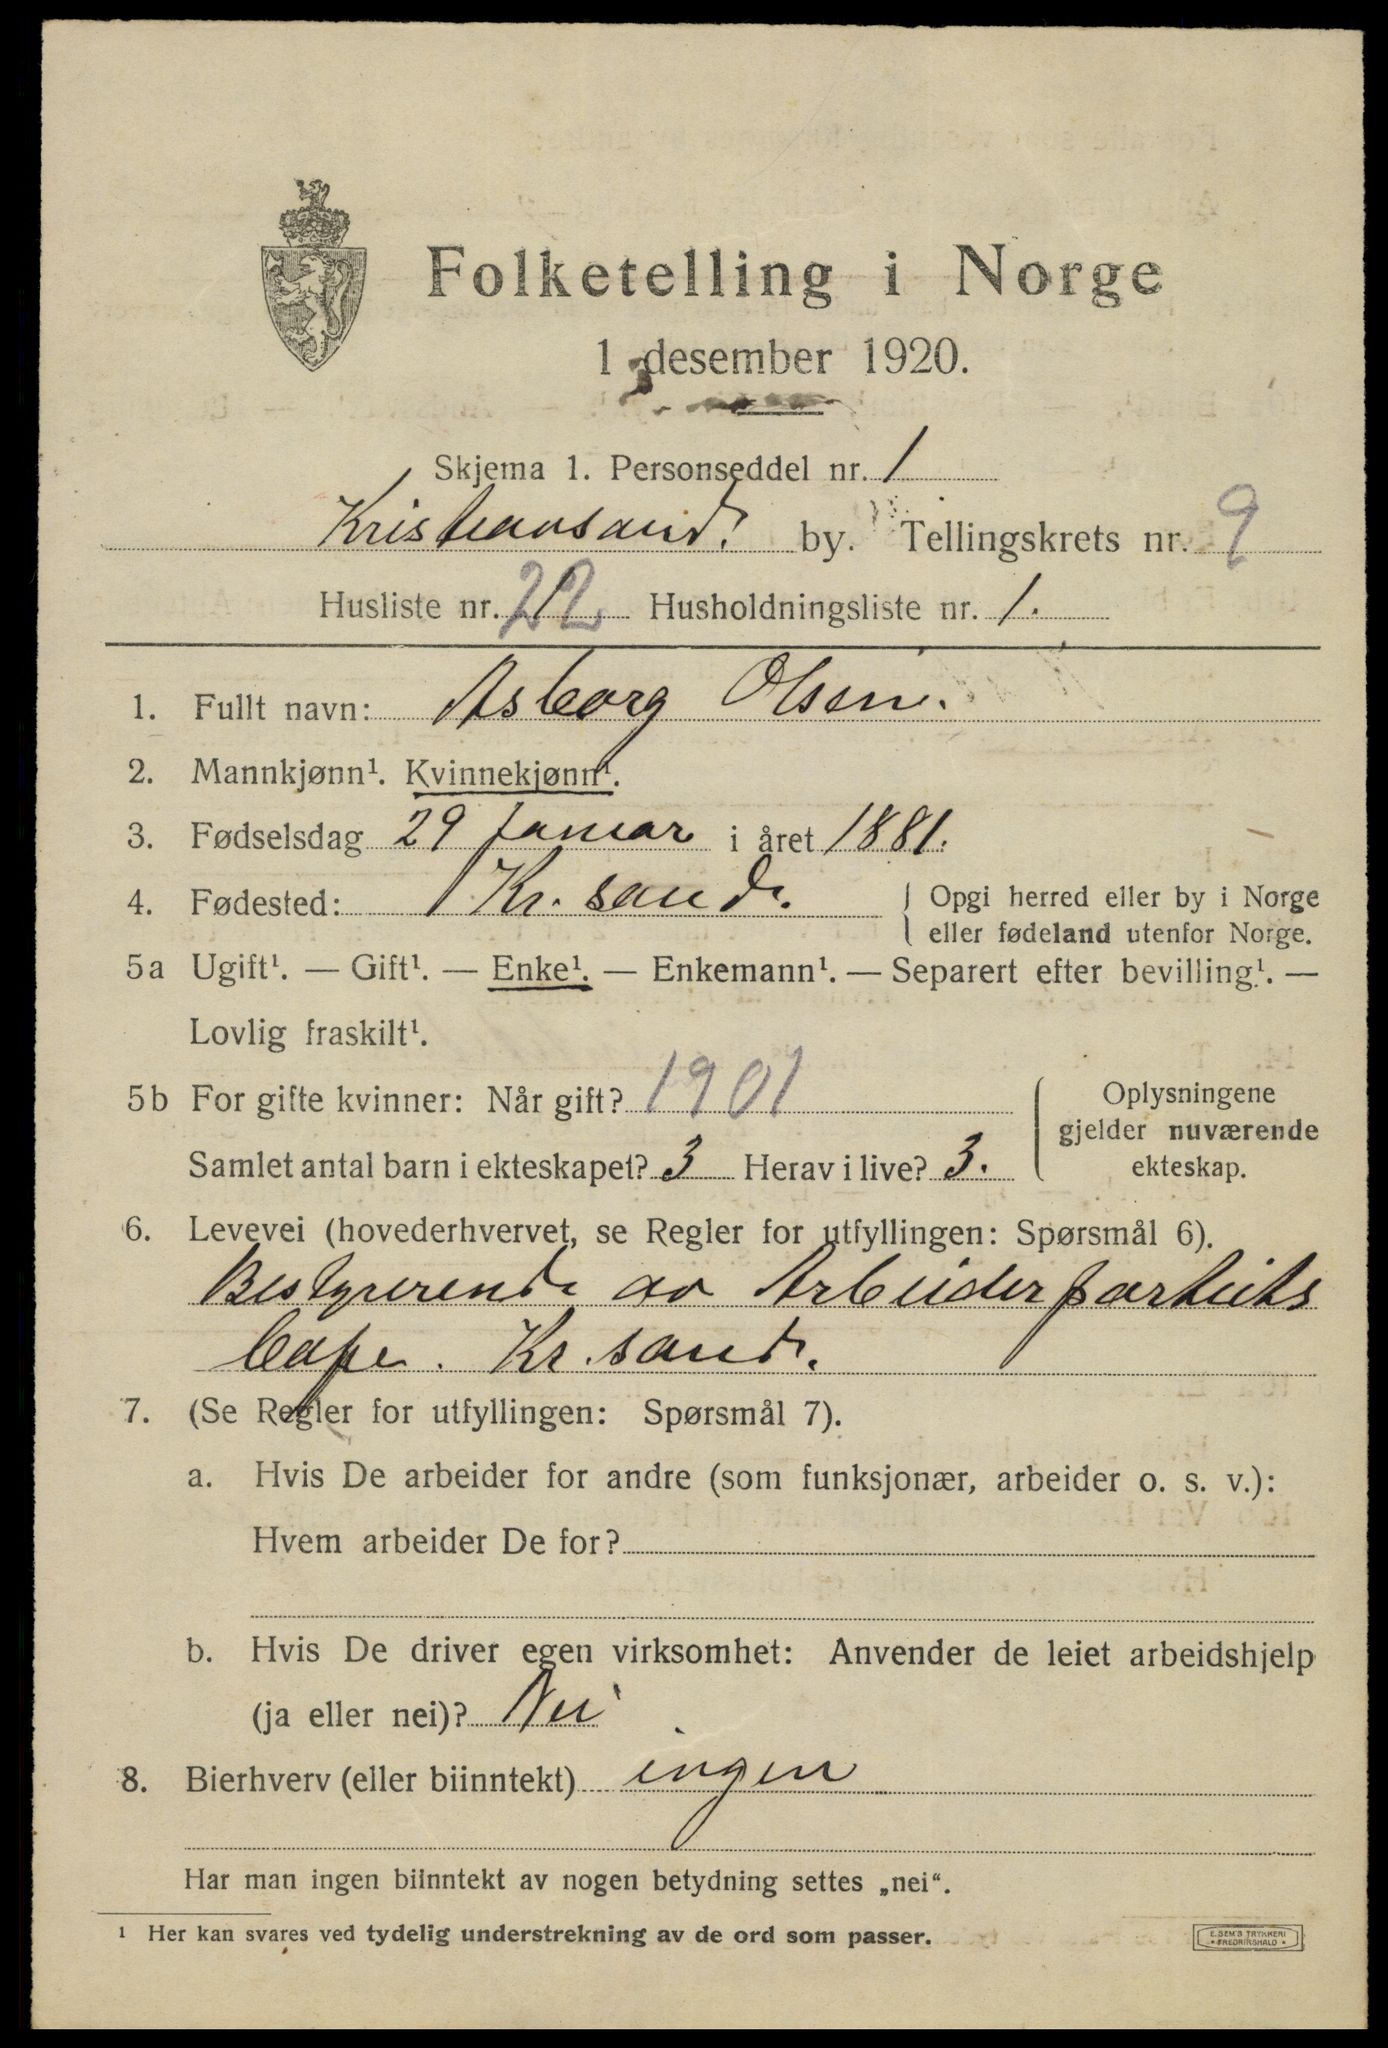 Folketelling i Norge
1 desember 1920.
Skjema 1. Personseddel nr. 1
Kristiansand. by. Tellingskrets nr. 9
Husliste nr. 22 Husholdningsliste nr. 1.
1. Fullt navn: Asborg Olsen.
2. Mannkjønn¹. Kvinnekjønn¹.
3. Fødselsdag 29 Januar i året 1881.
4. Fødested: Kr. sand. { Opgi herred eller by i Norge
eller fødeland utenfor Norge.
5a Ugift¹. — Gift¹. — Enke¹. — Enkemann¹. — Separert efter bevilling¹. —
Lovlig fraskilt¹.
5b For gifte kvinner: Når gift? 1901
Samlet antal barn i ekteskapet? 3 Herav i live? 3.
Oplysningene
gjelder nuværende
ekteskap.
6. Levevei (hovederhvervet, se Regler for utfyllingen: Spørsmål 6).
Bestyrerende av Arbeiderpartiets
Cafe. Kr. sand.
7. (Se Regler for utfyllingen: Spørsmål 7).
a. Hvis De arbeider for andre (som funksjonær, arbeider o. s. v.):
Hvem arbeider De for?
b. Hvis De driver egen virksomhet: Anvender de leiet arbeidshjelp
(ja eller nei)? Nei
8. Bierhverv (eller biinntekt) ingen
Har man ingen biinntekt av nogen betydning settes „nei“.
¹ Her kan svares ved tydelig understrekning av de ord som passer.
E. SEM'S TRYKKERI
• FREDRIKSHALD •